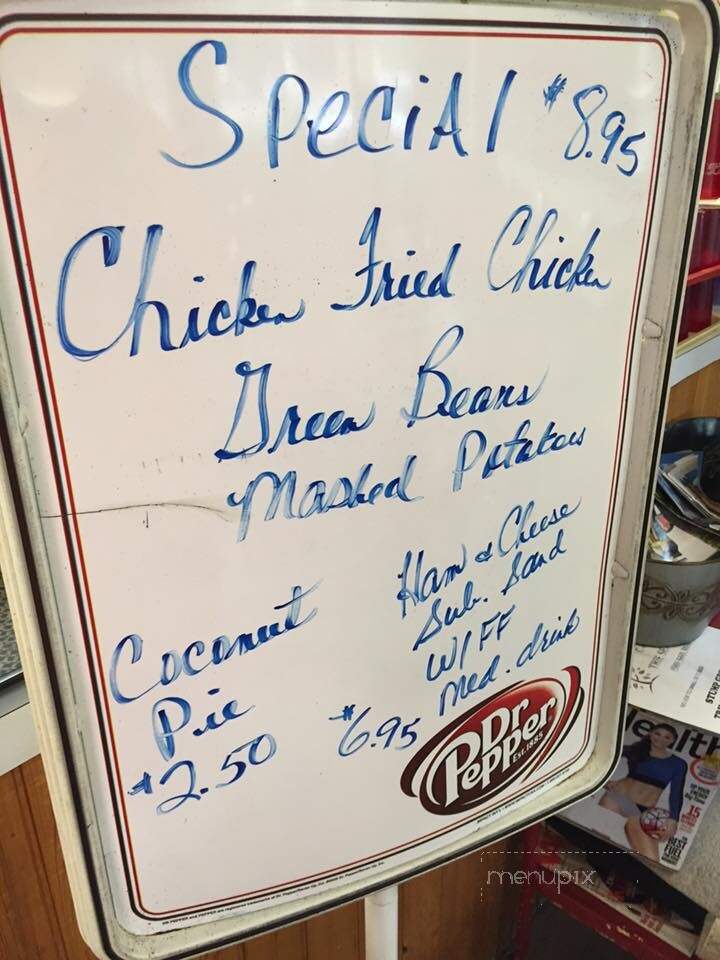 Special $8.95
Chicken Fried Chicken
Green Beans
Mashed Potatoes
Ham & Cheese
Sub. Sand
W/FF
Med. drink
$6.95
Coconut
Pie
$2.50
Dr
Pepper
EST. 1885
menupix